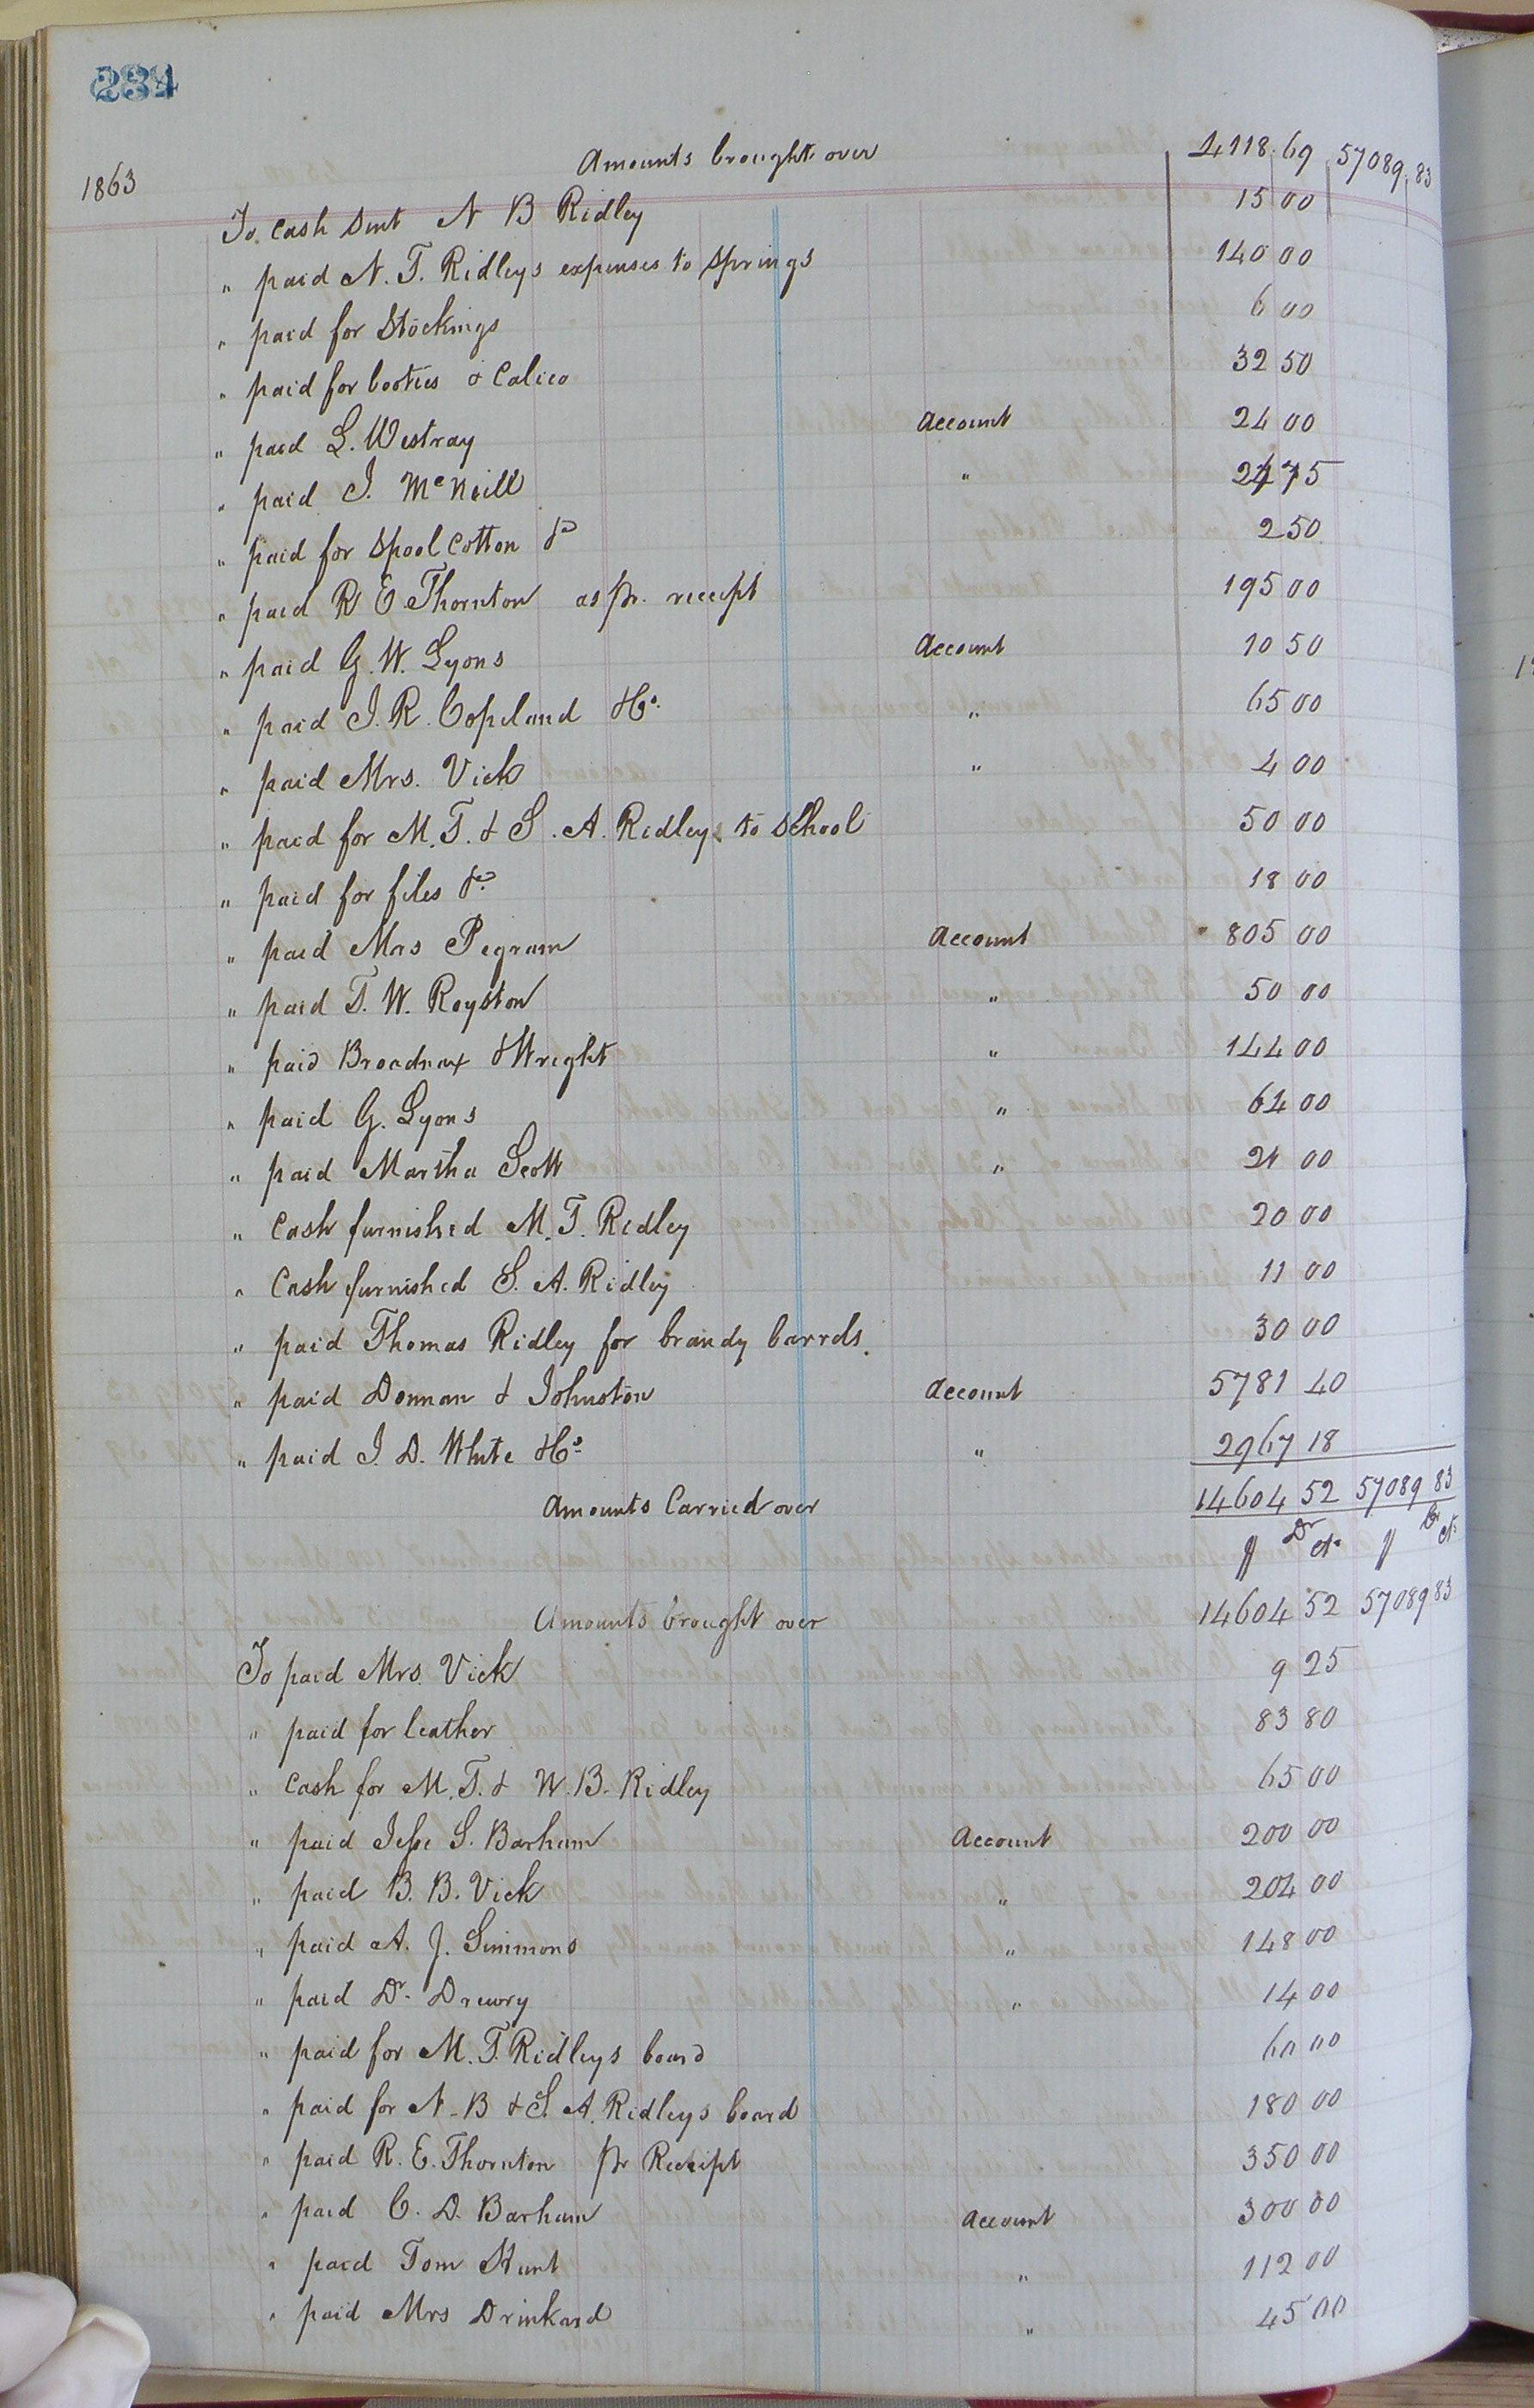 234
1863 Amounts brought over 4118.69 57089.83
To cash sent N B Ridley 15 00
" paid N. T. Ridleys expenses to Springs 140 00
" paid for Stockings 6 00
" paid for booties & Calico 32 50
" paid L. Westray Account 24 00
" paid J. McNeill " 26 75
" paid for Spool Cotton &c 2 50
" paid R E Thornton as pr. receipt 195 00
" paid G. W. Lyons Account 10 50
" paid J. R. Copeland & Co. " 65 00
" paid Mrs. Vick " 4 00
" paid for M. T. & S. A. Ridleys to School 50 00
" paid for files &c 18 00
" paid Mrs Pegram Account 805 00
" paid T. W. Royston " 50 00
" paid Broadnax & Wright " 144 00
" paid G. Lyons " 64 00
" paid Martha Scott " 24 00
" Cash furnished M. T. Ridley 20 00
" Cash furnished S. A. Ridley 11 00
" paid Thomas Ridley for brandy barrels. 30 00
" paid Donnan & Johnston Account 5781 40
" paid J. D. White & Co " 2967 18
Amounts Carried over 14604 52 57089 83
$ Dr cts $ Cr cts
Amounts brought over 14604 52 57089 83
To paid Mrs. Vick 9 25
" paid for leather 83 80
" Cash for M. T. & N. B. Ridley 65 00
" paid Jesse S. Barham Account 200 00
" paid B. B. Vick " 204 00
" paid A. J. Simmons " 148 00
" paid Dr. Drewry " 14 00
" paid for M. T. Ridleys board 60 00
" paid for N. B & S. A. Ridleys board 180 00
" paid R. E. Thornton pr Receipt 350 00
" paid C. D. Barham Account 300 00
" paid Tom Hunt " 112 00
" paid Mrs Drinkard " 45 00